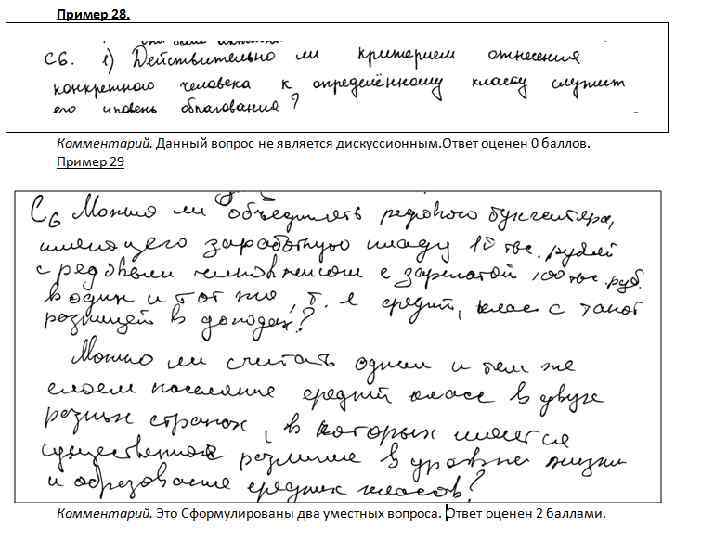 Пример 28.
С6. 1) Действительно ли критерием отнесения
конкретного человека к определённому классу служит
его уровень образования?
Комментарий. Данный вопрос не является дискуссионным.Ответ оценен 0 баллов.
Пример 29
С6 Можно ли объединять рядового бухгалтера,
имеющего заработную плату 10 тыс. рублей
с рядовым с зарплатой 100 тыс. руб.
в один и тот же, т. е средний, класс с такой
разницей в доходах?
Можно ли считать одним и тем же
слоем население средний класс в двух
разных странах, в которых имеется
существенное различие в уровне жизни
и образование средних классов?
Комментарий. Это Сформулированы два уместных вопроса. Ответ оценен 2 баллами.